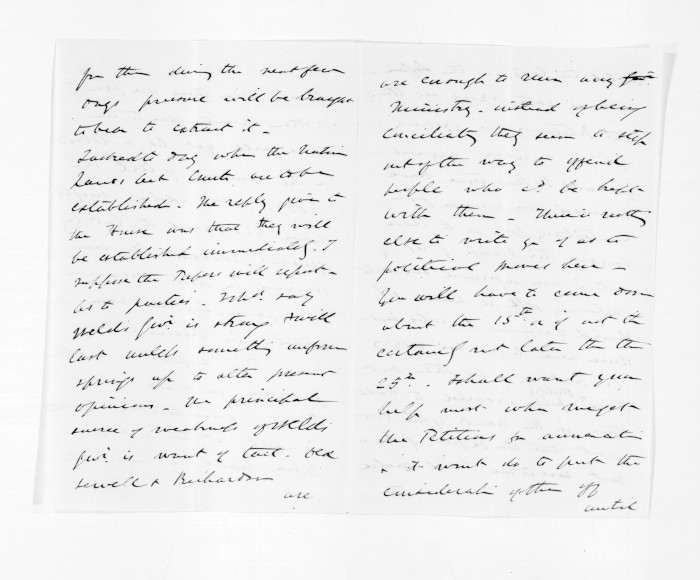 for them during the next few
days pressure will be brought
to bear to extract it -
I asked to day when the Native
Lands Act Courts are to be
established - The reply given to
the House was that they will
be established immediately. I
suppose the Papers will report -
As to parties - I shd. say
Welds Govt. is strong & will
last unless something unforeseen
springs up to alter present
opinions - The principal
source of weakness of Welds
Govt. is want of tact - Old
Sewell & Richardson
are
are enough to ruin any
Ministry - instead of being
conciliatory they seem to step
out of the way to offend
people who cd. be kept
with them - There is nothing
else to write you of as to
political moves here -
You will have to come down
about the 15th or if not then
certainly not later than the
25th. I shall want your
help most when we get
the Petitions for annexation
& it wont do to put the
consideration of them off
until